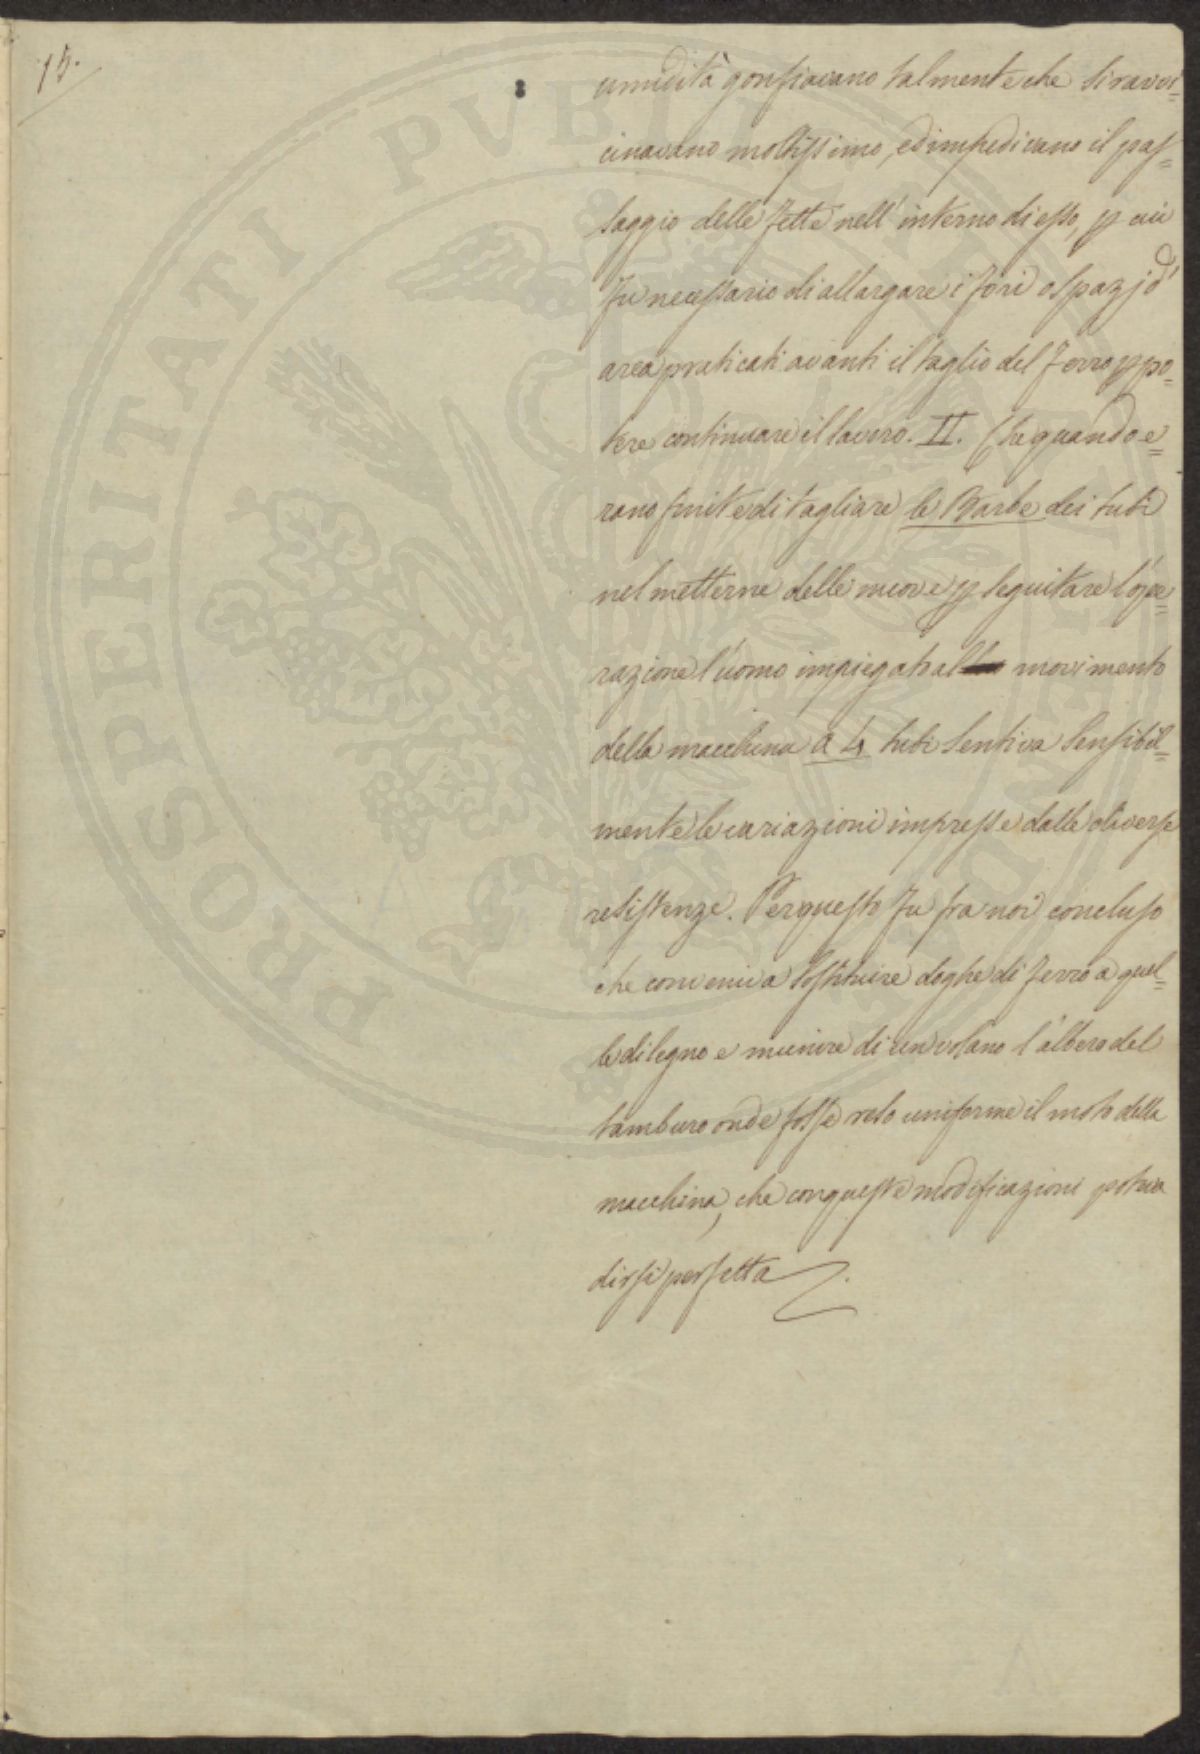 15.
umidità gonfiavano talmente che si ravvi=
cinavano moltissimo, ed impedivano il pas=
saggio delle fette nell'interno di esso, p cui
fu necessario di allargare i fori o spazj d'
area praticati avanti il taglio del ferro p po=
tere continuare il lavoro. II. Che quando e=
rano finite di tagliare le Barbe dei tubi
nel metterne delle nuove p seguitare l'ope=
razione l'uomo impiegato al movimento
della macchina a 4 tubi sentiva sensibil=
mente le variazioni impresse dalle diverse
resistenze. Per questo fu fra noi concluso
che conveniva sostituire doghe di ferro a quel=
le di legno e munire di un volano l'albero del
tamburo onde fosse reso uniforme il moto della
macchina, che con queste modificazioni poteva
dirsi perfetta.
PROSPERITATI PVBLICAE